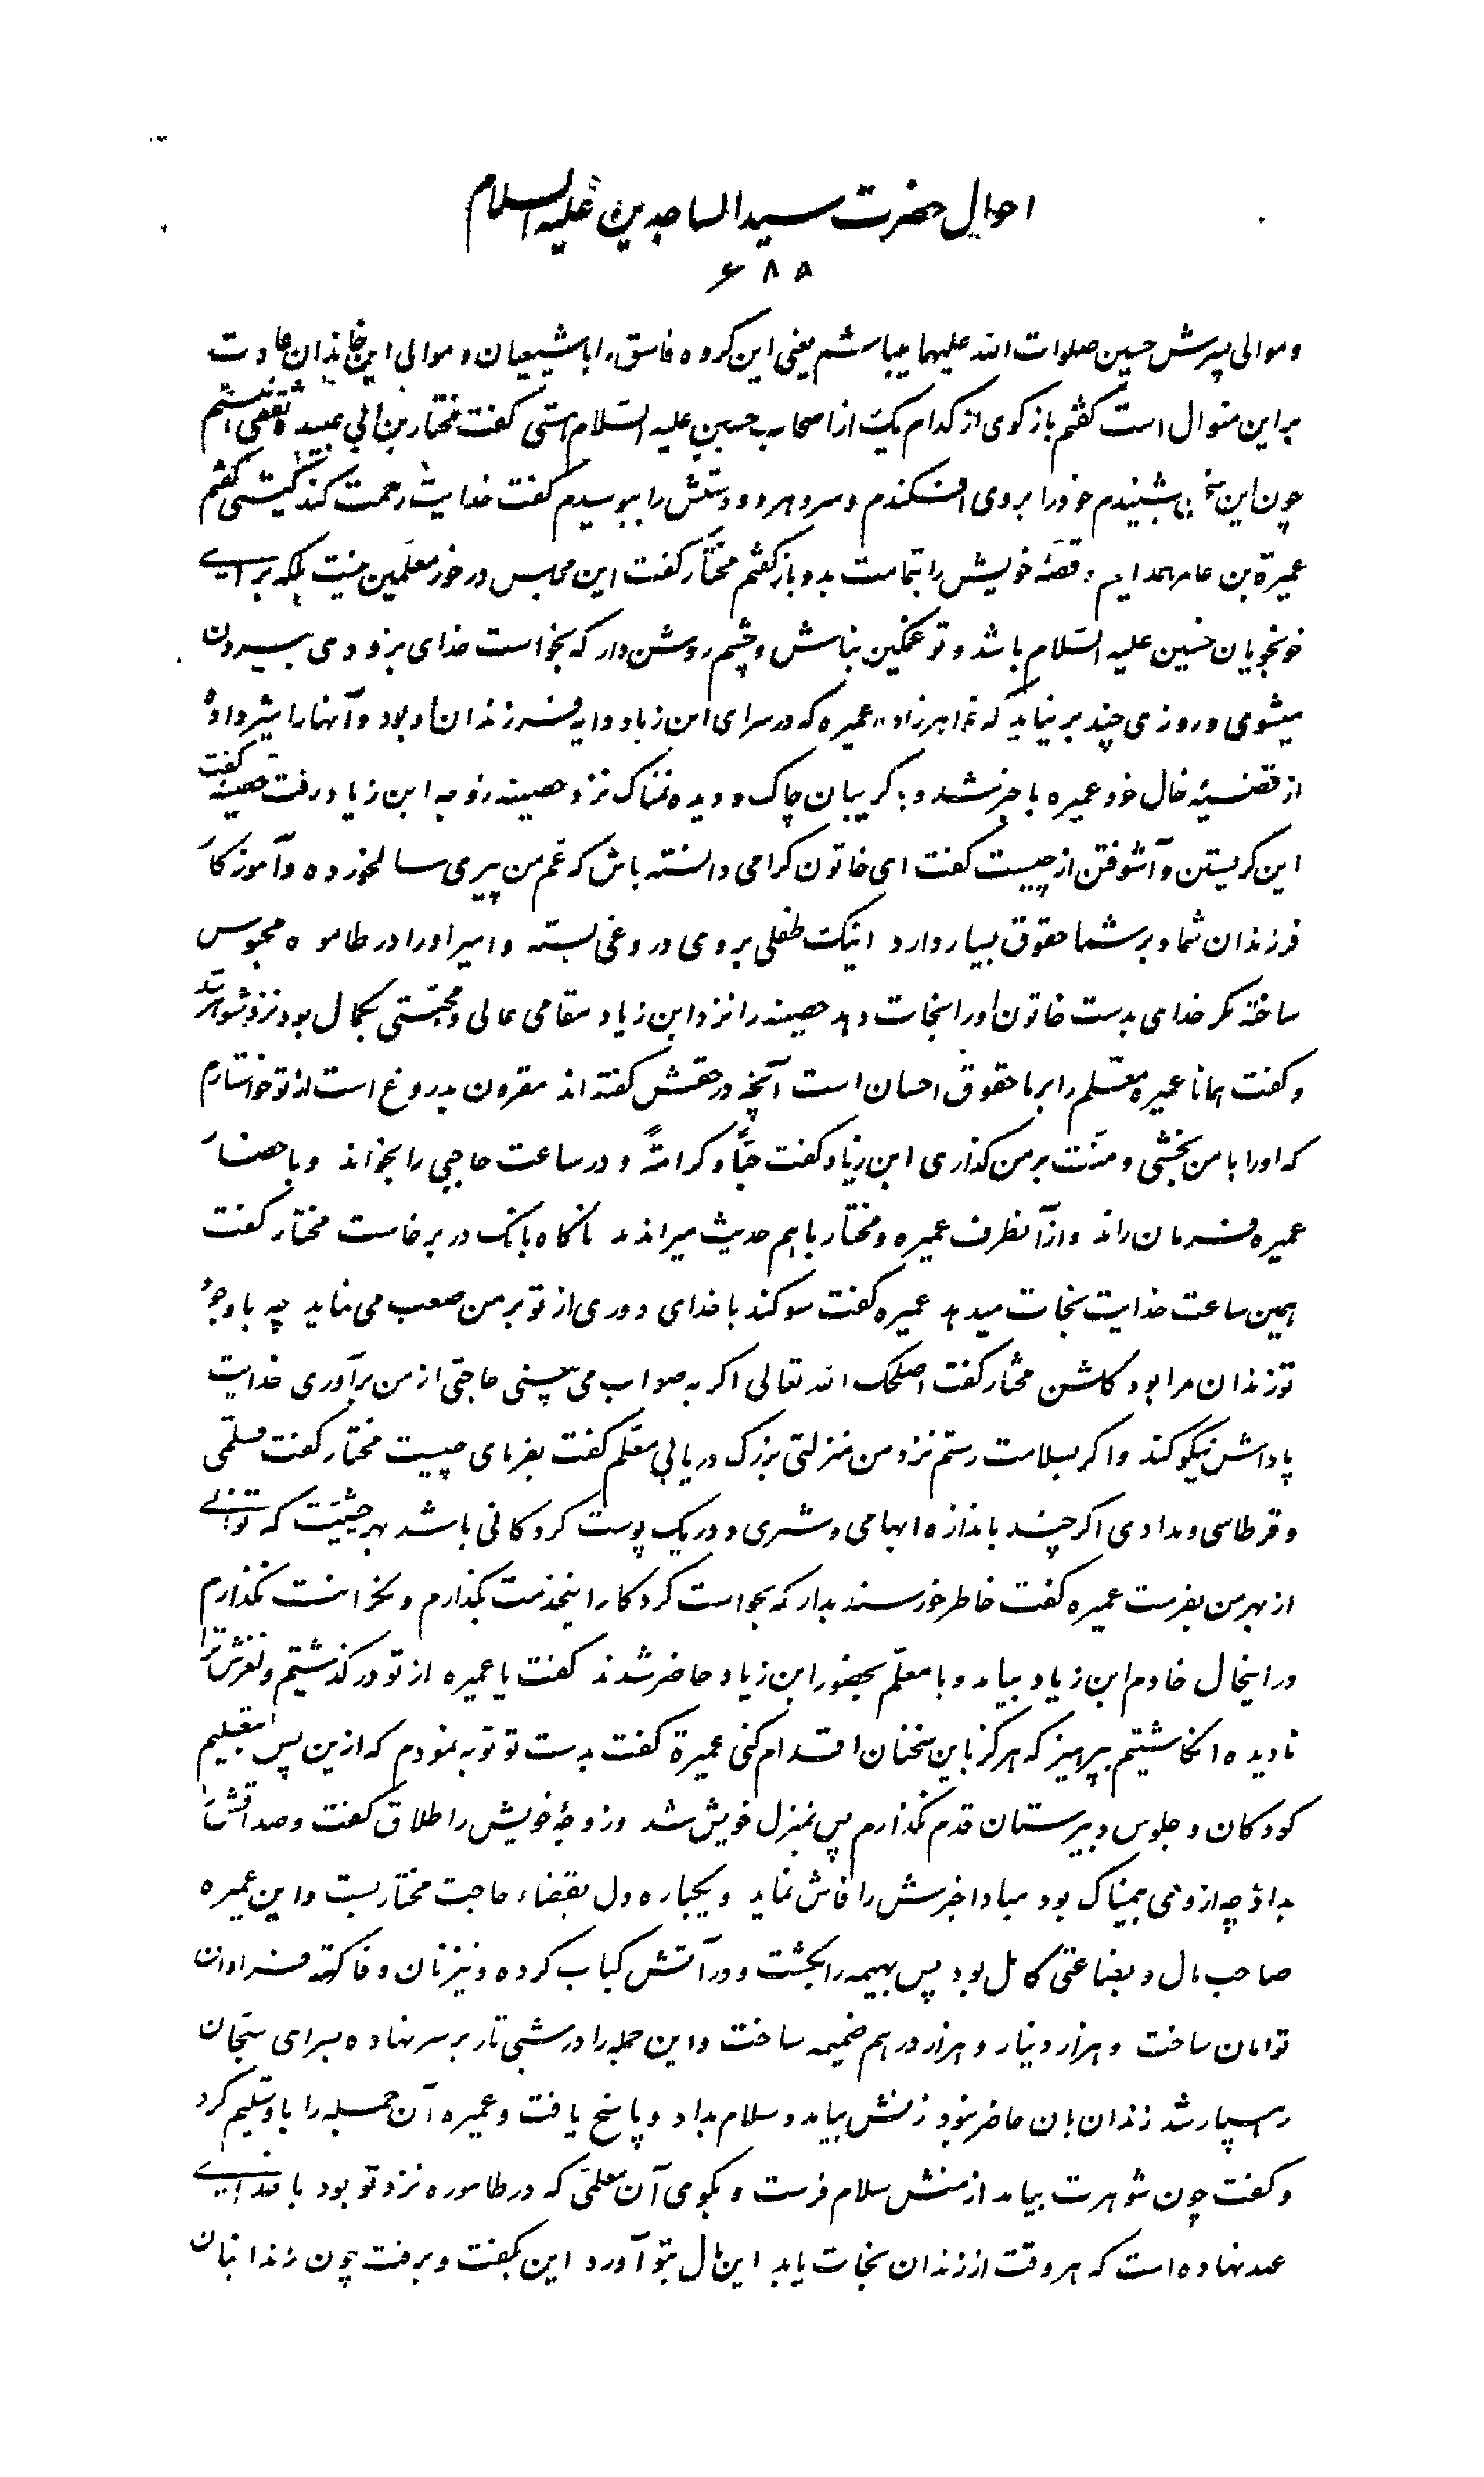 احوال حضرت سید الساجدین علیه السلام
۶۸۸
و موالی پسرش حسین صلوات الله علیهما میباشم یعنی این گروه فاسق را با شیعیان و موالی این خاندان عادت
بر این منوال است گفتم باز گوی از کدام یک از اصحاب حسین علیه السّلام هستی گفت مختار بن ابی عبیده ثقفی هستم
چون این سخن بشنیدم خود را بروی افکندم و سر و هر دو دستش را ببوسیدم گفت خدایت رحمت کند کیستی گفتم
عمیرة بن عامر همدانیم و قصّه خویش را بتمامت بدو باز گفتم مختار گفت این محبس در خور معلّمین نیست بلکه برای
خونجویان حسین علیه السّلام باشد و تو غمگین مباش و چشم روشن دار که بخواست خدای بزودی بیرون
میشوی و روزی چند بر نیاید که خواهرزاده عمیره که در سرای ابن زیاد دایه فرزندان او بود و آنها را شیر داده
از قضیّه خال خود عمیره با خبر شد و با گریبان چاک و دیده نمناک نزد حصینه زوجه ابن زیاد رفت حصینه گفت
این گریستن و آشوفتن از چیست گفت ای خاتون گرامی دانسته باش که عمّ من پیری سالخورده و آموزگار
فرزندان شما و بر شما حقوق بسیار دارد اینک طفلی بر وی دروغی بسته و امیر او را در طاموره محبوس
ساخته مگر خدای بدست خاتون او را نجات دهد حصینه را نزد ابن زیاد مقامی عالی و محبّتی بکمال بود نزد شوهر شد
و گفت همانا عمیره معلّم را بر ما حقوق احسان است آنچه در حقش گفته اند مقرون بدروغ است از تو خواستارم
که او را با من بخشی و منّت بر من گذاری ابن زیاد گفت حبّاً و کرامةً و در ساعت حاجبی را بخواند و باحضار
عمیره فرمان راند و از آنطرف عمیره و مختار با هم حدیث میراندند ناگاه بانگ در برخاست مختار گفت
همین ساعت خدایت نجات میدهد عمیره گفت سوگند با خدای دوری از تو بر من صعب می نماید چه با وجود
تو زندان مرا بود گلشن مختار گفت اصلحک الله تعالی اگر به صواب می بینی حاجتی از من برآوری خدایت
پاداش نیکو کند و اگر بسلامت رستم نزد من منزلتی بزرگ دریابی معلّم گفت بفرمای چیست مختار گفت قلمی
و قرطاسی و مدادی اگر چند باندازه ابهامی و شبری و در یک پوست گردکانی باشد بهر حیثیت که توانی
از بهر من بفرست عمیره گفت خاطر خورسند بدار که بخواست کردگار اینخدمت بگذارم و بخرامنت نگذارم
در اینحال خادم ابن زیاد بیامد و با معلّم بحضور ابن زیاد حاضر شدند گفت یا عمیره از تو در گذشتیم و لغزشت را
نادیده انگاشتیم بپرهیز که هرگز باین سخنان اقدام کنی عمیرة گفت بدست تو توبه نمودم که ازین پس بتعلیم
کودکان و جلوس دبیرستان قدم نگذارم پس بمنزل خویش شد و زوجهٔ خویش را طلاق گفت و صداقش را
بداد چه از وی بیمناک بود مبادا خبرش را فاش نماید و یکباره دل بقضاء حاجت مختار بست و این عمیره
صاحب مال و بضاعتی کامل بود پس بهیمه را بکشت و در آتش کباب کرده و نیز نان و فاکهه فراوان
توامان ساخت و هزار دینار و هزار درهم ضمیمه ساخت و این جمله را در شبی تار بر سر نهاده بسرای سبحان
رهسپار شد زندان بان حاضر نبود زنش بیامد و سلام بداد و پاسخ یافت و عمیره آن جمله را باو تسلیم کرد
و گفت چون شوهرت بیامد از منش سلام فرست و بگوی آن معلمی که در طاموره نزد تو بود با خدای
عهد نهاده است که هر وقت از زندان نجات یابد این مال بتو آورد این بگفت و برفت چون زندانبان